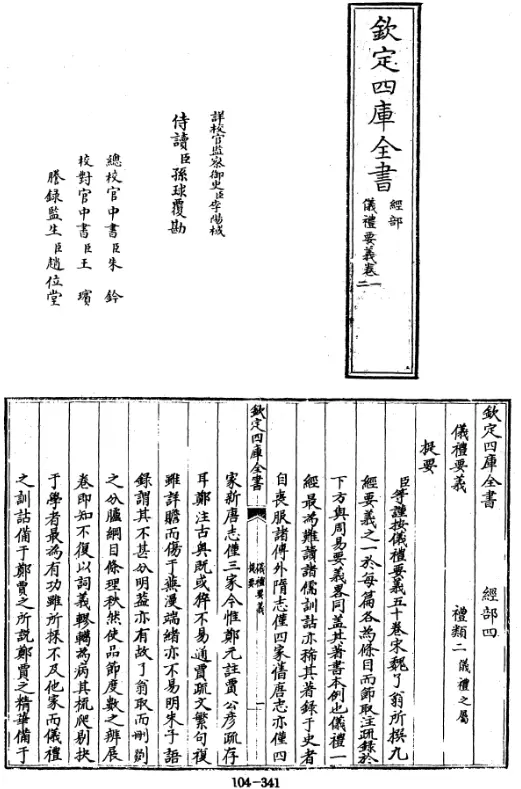 欽定四庫全書
經部
儀禮要義卷一
二
詳校官監察御史臣李陽棫
侍讀臣孫球覆勘
總校官中書臣朱鈐
校對官中書臣王璸
謄錄監生臣趙位堂
欽定四庫全書 經部四
儀禮要義 禮類二儀禮之屬
提要
臣等謹按儀禮要義五十卷宋魏了翁所撰九
經要義之一於每篇各為條目而節取注疏錄於
下方與周易要義畧同蓋其著書本例也儀禮一
經最為難讀諸儒訓詁亦稀其著錄于史者
自喪服諸傳外隋志僅四家舊唐志亦僅四
欽定四庫全書
儀禮要義
提要
一
家新唐志僅三家今惟鄭元註賈公彥疏存
耳鄭注古奧既或猝不易通賈疏文繁句複
雖詳贍而傷于蕪漫端緒亦不易明朱子語
錄謂其不甚分明蓋亦有故了翁取而刪剟
之分臚綱目條理秩然使品節度數之辨展
卷即知不復以詞義轇轕為病其梳爬剔抉
于學者最為有功雖所採不及他家而儀禮
之訓詁備于鄭賈之所說鄭賈之精華備于
104-341